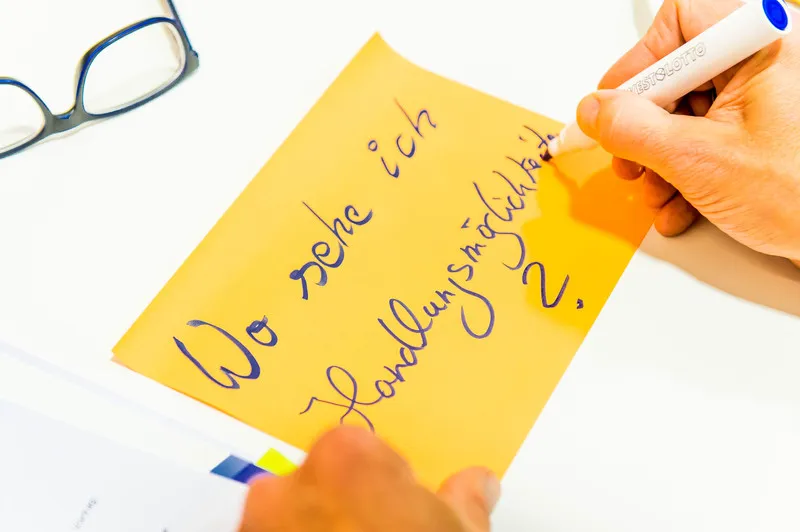 Wo sehe ich
Handlungsmöglichkeite
?
WESTLOTTO